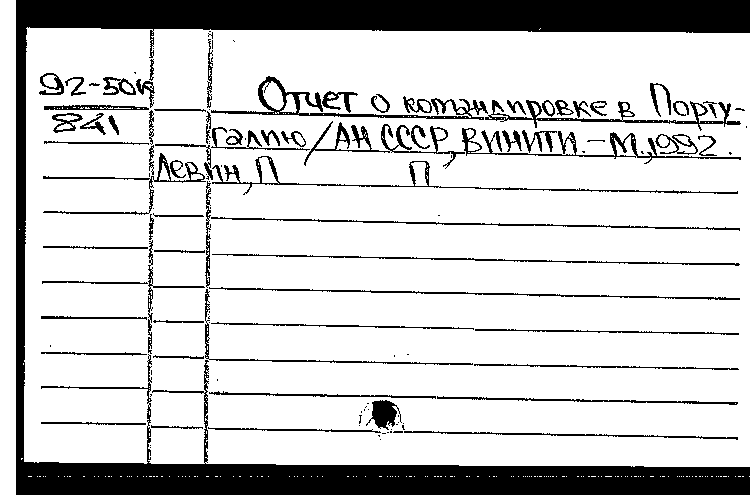 92-50к Отчет о командировке в Порту-
841 галию / АН СССР, ВИНИТИ. – М., 1992.
Левин, П П